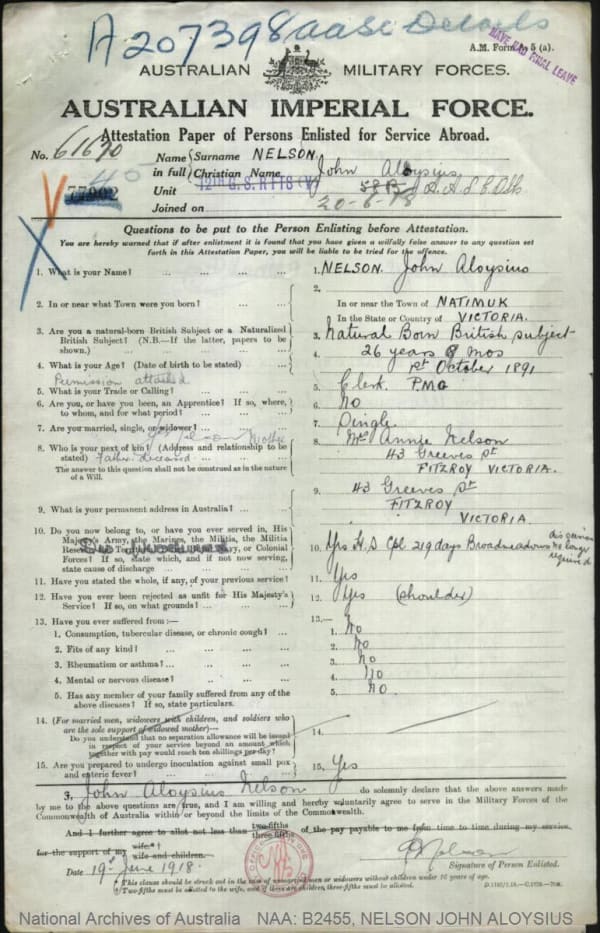 A207398 aasc Details
HAVE HAD FINAL LEAVE
A.M. Form A 5 (a).
AUSTRALIAN MILITARY FORCES.
AUSTRALIAN IMPERIAL FORCE.
Attestation Paper of Persons Enlisted for Service Abroad.
No. 61670
Name in full { Surname NELSON,
Christian Name John Aloysius
77902
Unit 12th G.S. RTTS (V)
Joined on 20-6-18
Questions to be put to the Person Enlisting before Attestation.
You are hereby warned that if after enlistment it is found that you have given a wilfully false answer to any question set
forth in this Attestation Paper, you will be liable to be tried for the offence.
1. What is your Name? ... 1. NELSON. John Aloysius
2. In or near what Town were you born? ... 2. In or near the Town of NATIMUK
In the State or Country of VICTORIA.
3. Are you a natural-born British Subject or a Naturalized
British Subject? (N.B.—If the latter, papers to be
shown.) ... 3. Natural Born British subject
4. What is your Age? (Date of birth to be stated) 4. 26 years 8 mos
1st October 1891
Permission attached
5. What is your Trade or Calling? ... 5. Clerk. P.M.G
6. Are you, or have you been, an Apprentice? If so, where,
to whom, and for what period? ... 6. No
7. Are you married, single, or widower? ... 7. Single.
Mother
8. Who is your next of kin? (Address and relationship to be
stated) Father deceased ... 8. Mrs Annie Nelson
43 Greeves St
FITZROY VICTORIA.
The answer to this question shall not be construed as in the nature
of a Will.
9. What is your permanent address in Australia? ... 9. 43 Greeves St
FITZROY
VICTORIA.
10. Do you now belong to, or have you ever served in, His
Majesty's Army, the Marines, the Militia, the Militia
Reserve, the Territorial Reserve, Royal Navy, or Colonial
Forces? If so, state which, and if not now serving,
state cause of discharge ... 10. Yes H.S. Cpl 219 days Broadmeadows
no longer
required
11. Have you stated the whole, if any, of your previous service? 11. Yes
12. Have you ever been rejected as unfit for His Majesty's
Service? If so, on what grounds? ... 12. Yes (shoulder)
13. Have you ever suffered from :— 13.—
1. Consumption, tubercular disease, or chronic cough? ... 1. No
2. Fits of any kind? ... 2. No
3. Rheumatism or asthma? ... 3. No
4. Mental or nervous disease? ... 4. No
5. Has any member of your family suffered from any of the
above diseases? If so, state particulars. 5. No.
14. (For married men, widowers with children, and soldiers who
are the sole support of widowed mother)—
Do you understand that no separation allowance will be issued
in respect of your service beyond an amount which
together with pay would reach ten shillings per day? ... 14.
15. Are you prepared to undergo inoculation against small pox
and enteric fever? ... 15. Yes
I, John Aloysius Nelson do solemnly declare that the above answers made
by me to the above questions are true, and I am willing and hereby voluntarily agree to serve in the Military Forces of the
Commonwealth of Australia within or beyond the limits of the Commonwealth.
And I further agree to allot not less than two-fifths three-fifths of the pay payable to me from time to time during my service
for the support of my wife.* wife and children.
Date 19th June 1918.
J Nelson
Signature of Person Enlisted.
*This clause should be struck out in the case of unmarried men or widowers without children under 16 years of age.
†Two-fifths must be allotted to the wife, and if there are children, three-fifths must be allotted.
National Archives of Australia NAA: B2455, NELSON JOHN ALOYSIUS